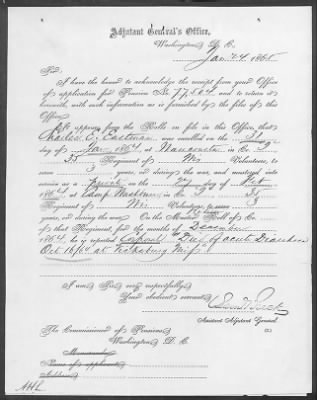 Adjutant General's Office,
Washington, D. C.
Jan 24 1865
Sir:
I have the honor to acknowledge the receipt from your Office
of application for Pension No. 77,504, and to return it
herewith, with such information as is furnished by the files of this
Office.
It appears from the Rolls on file in this Office, that
Charles C. Eastman was enrolled on the
day of Jan 1864, at in Co.
35 Regiment of Wis Volunteers, to serve
3 years, or during the war, and mustered into
service as a Private on the day of
1864, at Camp Washburn in Co. 35
Regiment of Wis Volunteers, to serve 3
years, or during the war. On the Muster Roll of Co.
of that Regiment, for the months of December
1864, he is reported Corporal Died of acute Diarrhea
Oct 16/64 at Vicksburg Miss
I am, Sir, very respectfully,
Your obedient servant,
Assistant Adjutant General.
The Commissioner of Pensions,
Washington, D. C.
Memoranda:
Name of applicant,
Address,